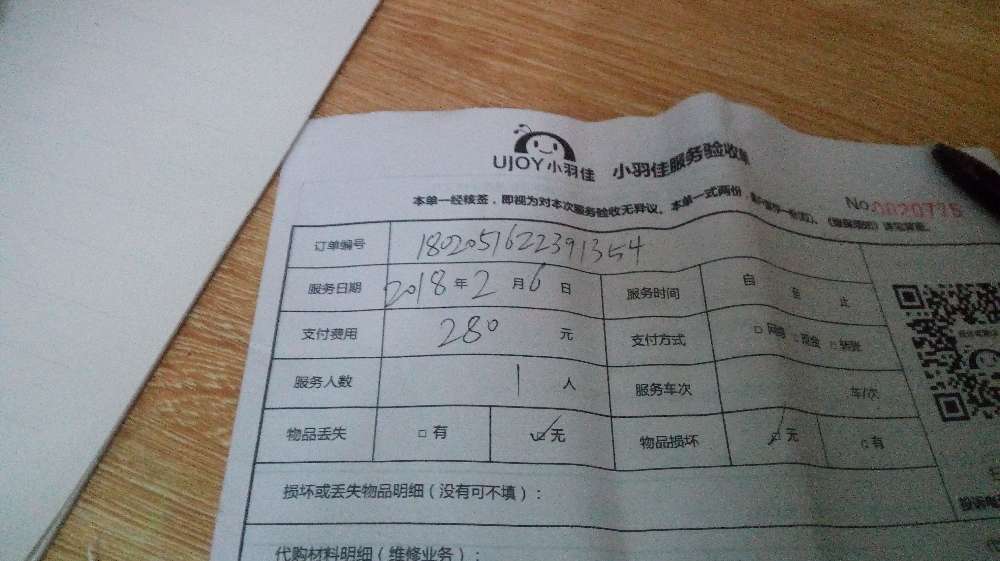 UJOY小羽佳 小羽佳服务验收单
No.0020775
本单一经核签，即视为对本次服务验收无异议。本单一式两份，
订单编号 1802051622391354
服务日期 2018年2月6日 服务时间 自 至 止
支付费用 280 元 支付方式 □网络 □现金 □转账
服务人数 1 人 服务车次 车/次
物品丢失 □有 ☑无 物品损坏 ☑无 □有
损坏或丢失物品明细（没有可不填）：
投诉电
代购材料明细（维修业务）：